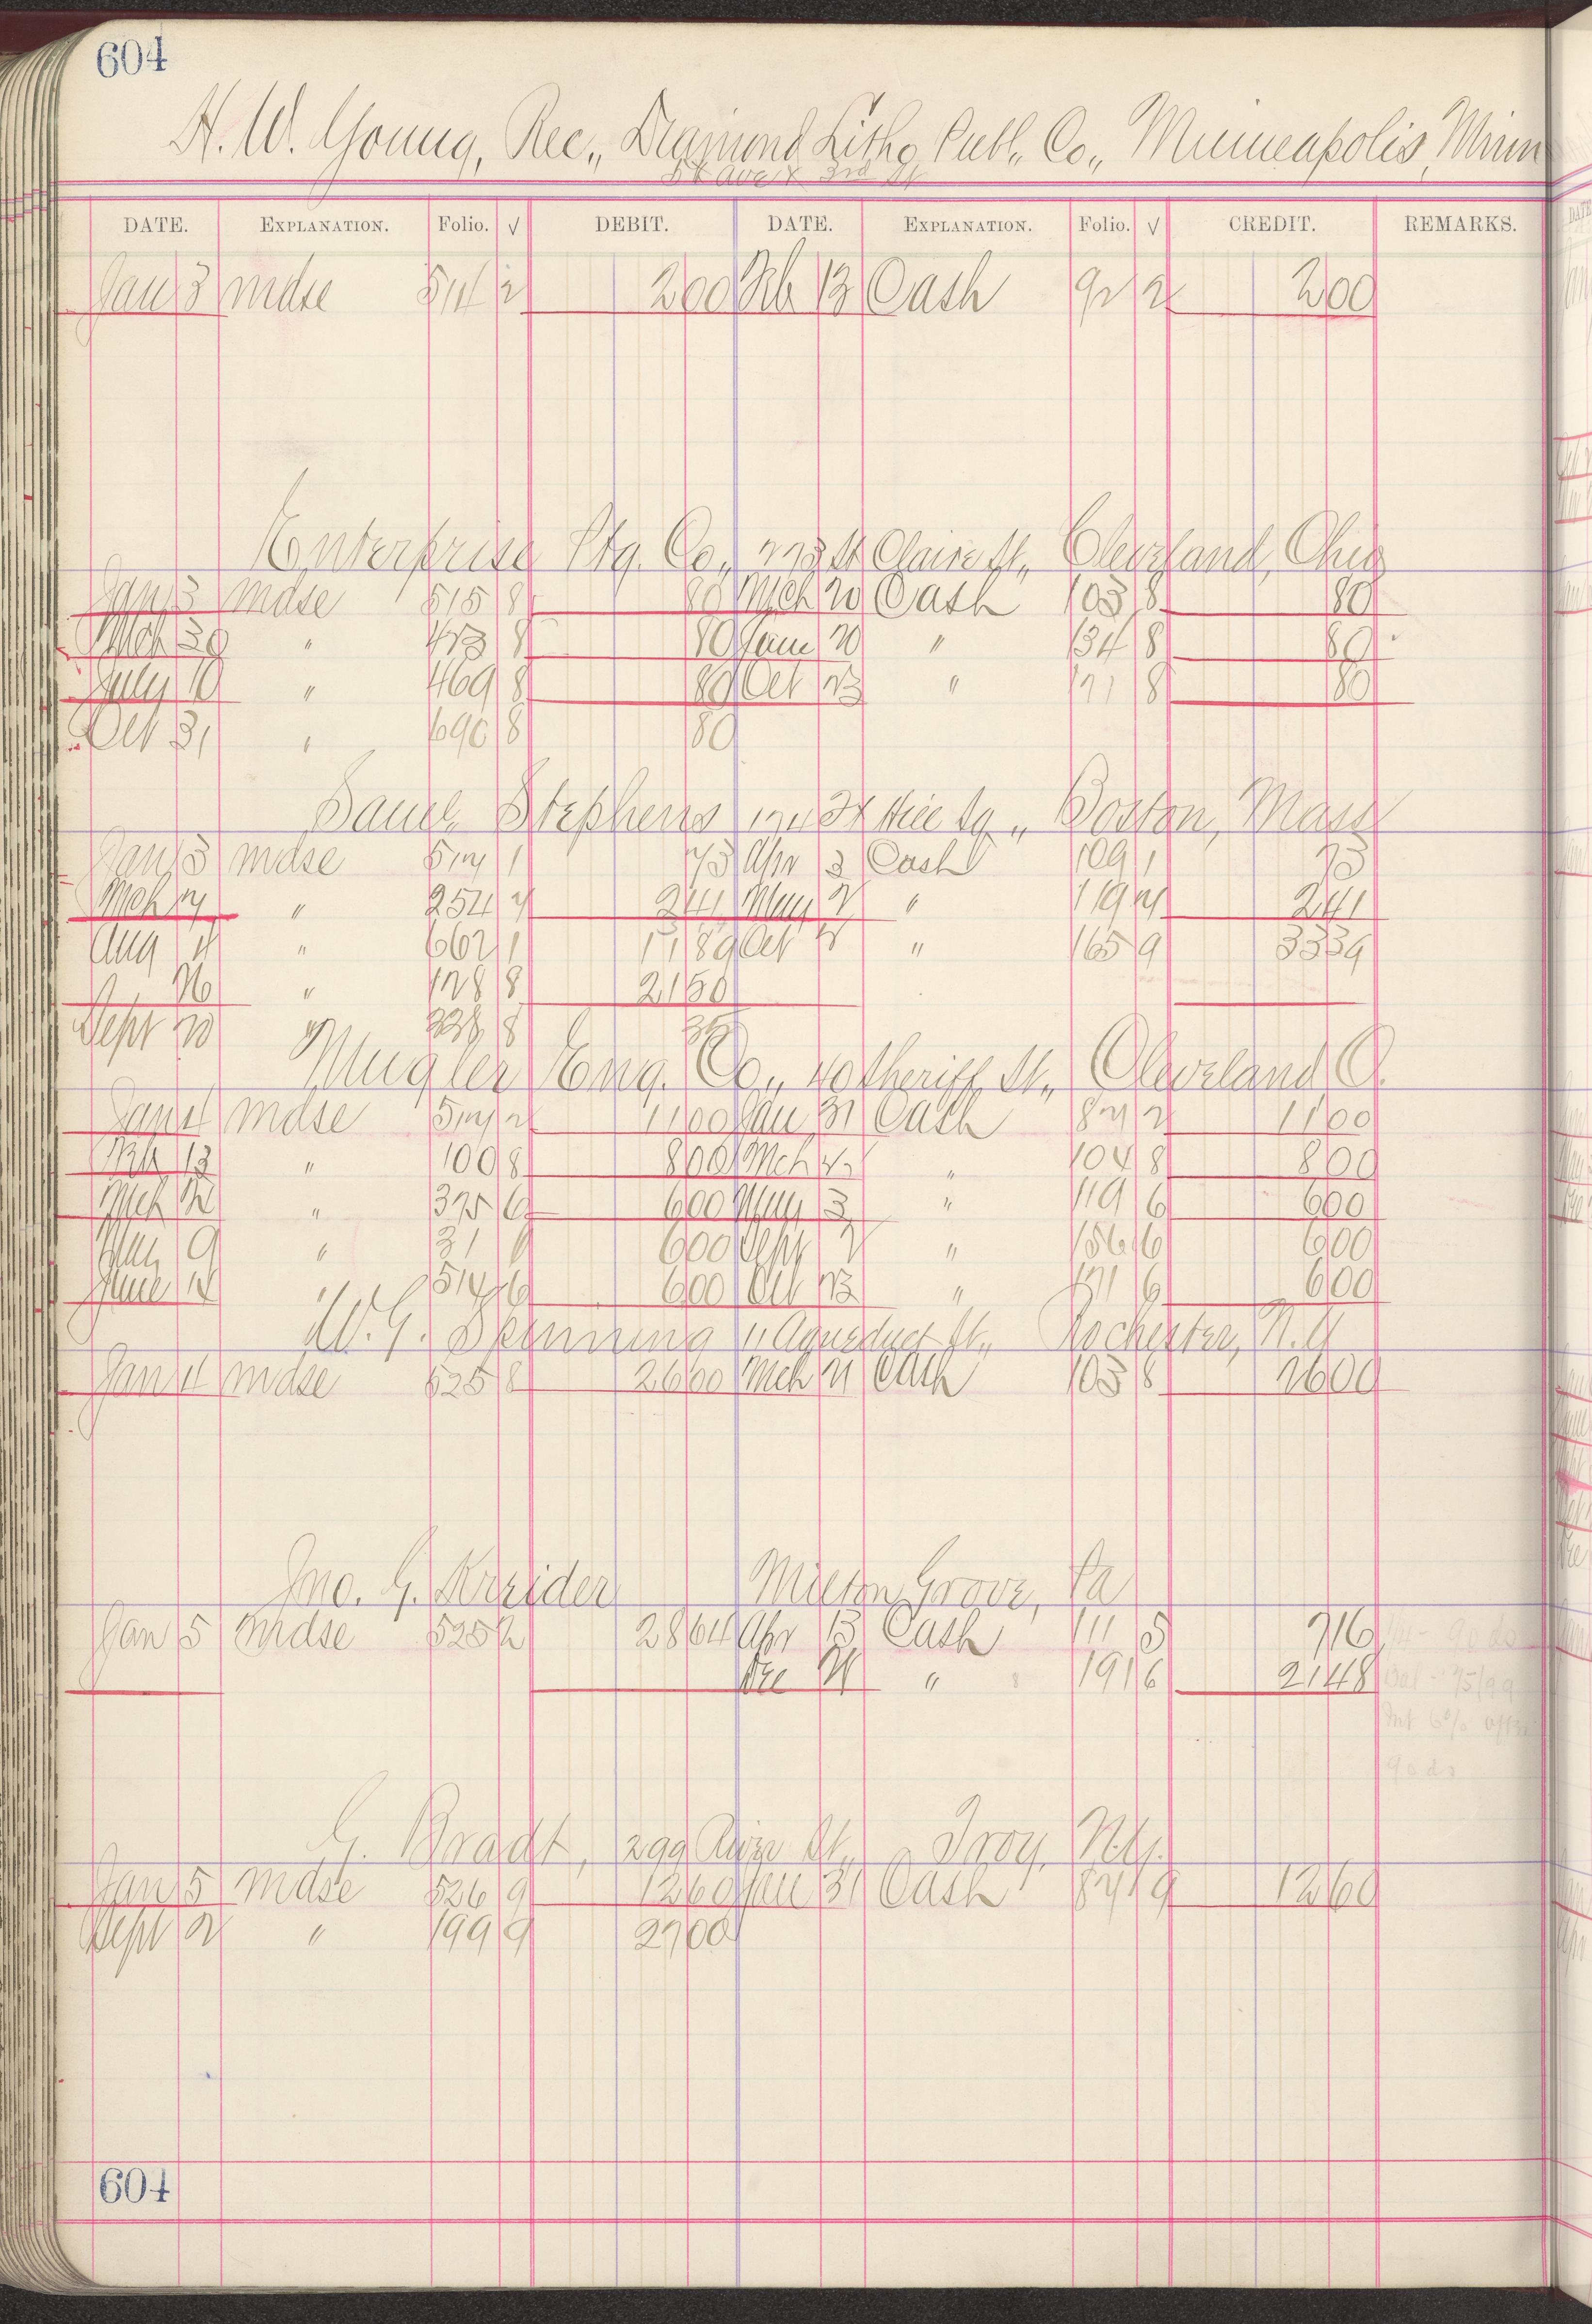 604
H. W. Young, Rec., Diamond Litho. Publ. Co., Minneapolis, Minn
Ave & 3rd St
DATE. EXPLANATION. Folio. √ DEBIT. DATE. EXPLANATION. Folio. √ CREDIT. REMARKS.
Jan 3 mdse 514 2 200 Feb 13 Cash 92 2 200
Enterprise Ptg. Co., 223 St Claire St., Cleveland, Ohio
Jan 3 mdse 515 8 80 Mch 20 Cash 105 8 80
Mch 30 " 423 8 80 June 20 " 134 8 80
July 10 " 469 8 80 Oct 23 " 171 8 80
Oct 31 " 690 8 80
Saml. Stephens 174 Ft Hill Sq., Boston, Mass
Jan 3 mdse 517 1 75 Apr 3 Cash 109 1 75
Mch 7 " 254 7 241 May 2 " 119 7 241
Aug 4 " 662 1 1189 Oct " 165 9 3339
26 " 128 8 2150
Sept 20 " 338 8
Mugler Eng. Co., 40 Sheriff St., Cleveland O.
Jan 4 mdse 517 2 1100 Jan 31 Cash 87 2 1100
Feb 13 " 100 8 800 Mch " 104 8 800
Mch " 325 6 600 May 3 " 119 6 600
May 9 " 31 6 600 Sept 2 " 156 6 600
June 14 " 514 6 600 Oct 23 " 171 6 600
W. G. Spinning 11 Aqueduct St., Rochester, N.Y
Jan 4 mdse 525 8 2600 Mch 21 Cash 105 8 2600
Jno. G. Kreider Milton Grove, Pa
Jan 5 mdse 525 2 2864 Apr 13 Cash 111 5 716
Dec " 191 6 2148
Int 6%
90 ds
G. Bradt, 299 River St., Troy, N.Y.
Jan 5 mdse 526 9 1260 Jan 31 Cash 87 9 1260
Sept 2 " 199 9 2700
604